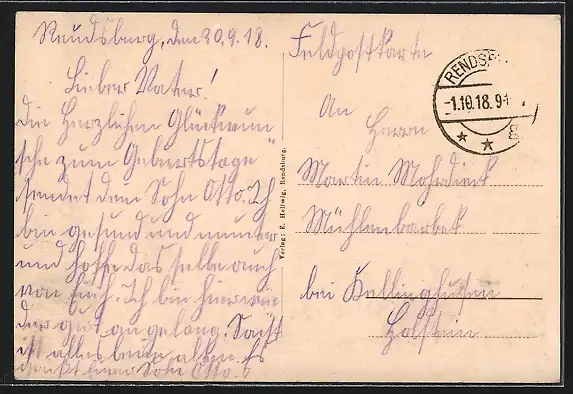 Rendsburg, den 30.9.18.
Lieber Vater!
Die Herzlichen Glückwün
sche zum Geburtstage
sendet dein Sohn Otto. Ich
bin gesund und munter
und hoffe dasselbe auch
von Euch. Ich bin hier wie
der gut angelangt. Sonst
ist alles beim alten. Es
grüßt Euer Sohn Otto.
Verlag: E. Hellwig, Rendsburg.
Feldpostkarte
RENDSB
-1.10.18. 9-
An
Herrn
Martin Mohrdieck
Mühlenbarbek
bei Kellinghusen
Holstein